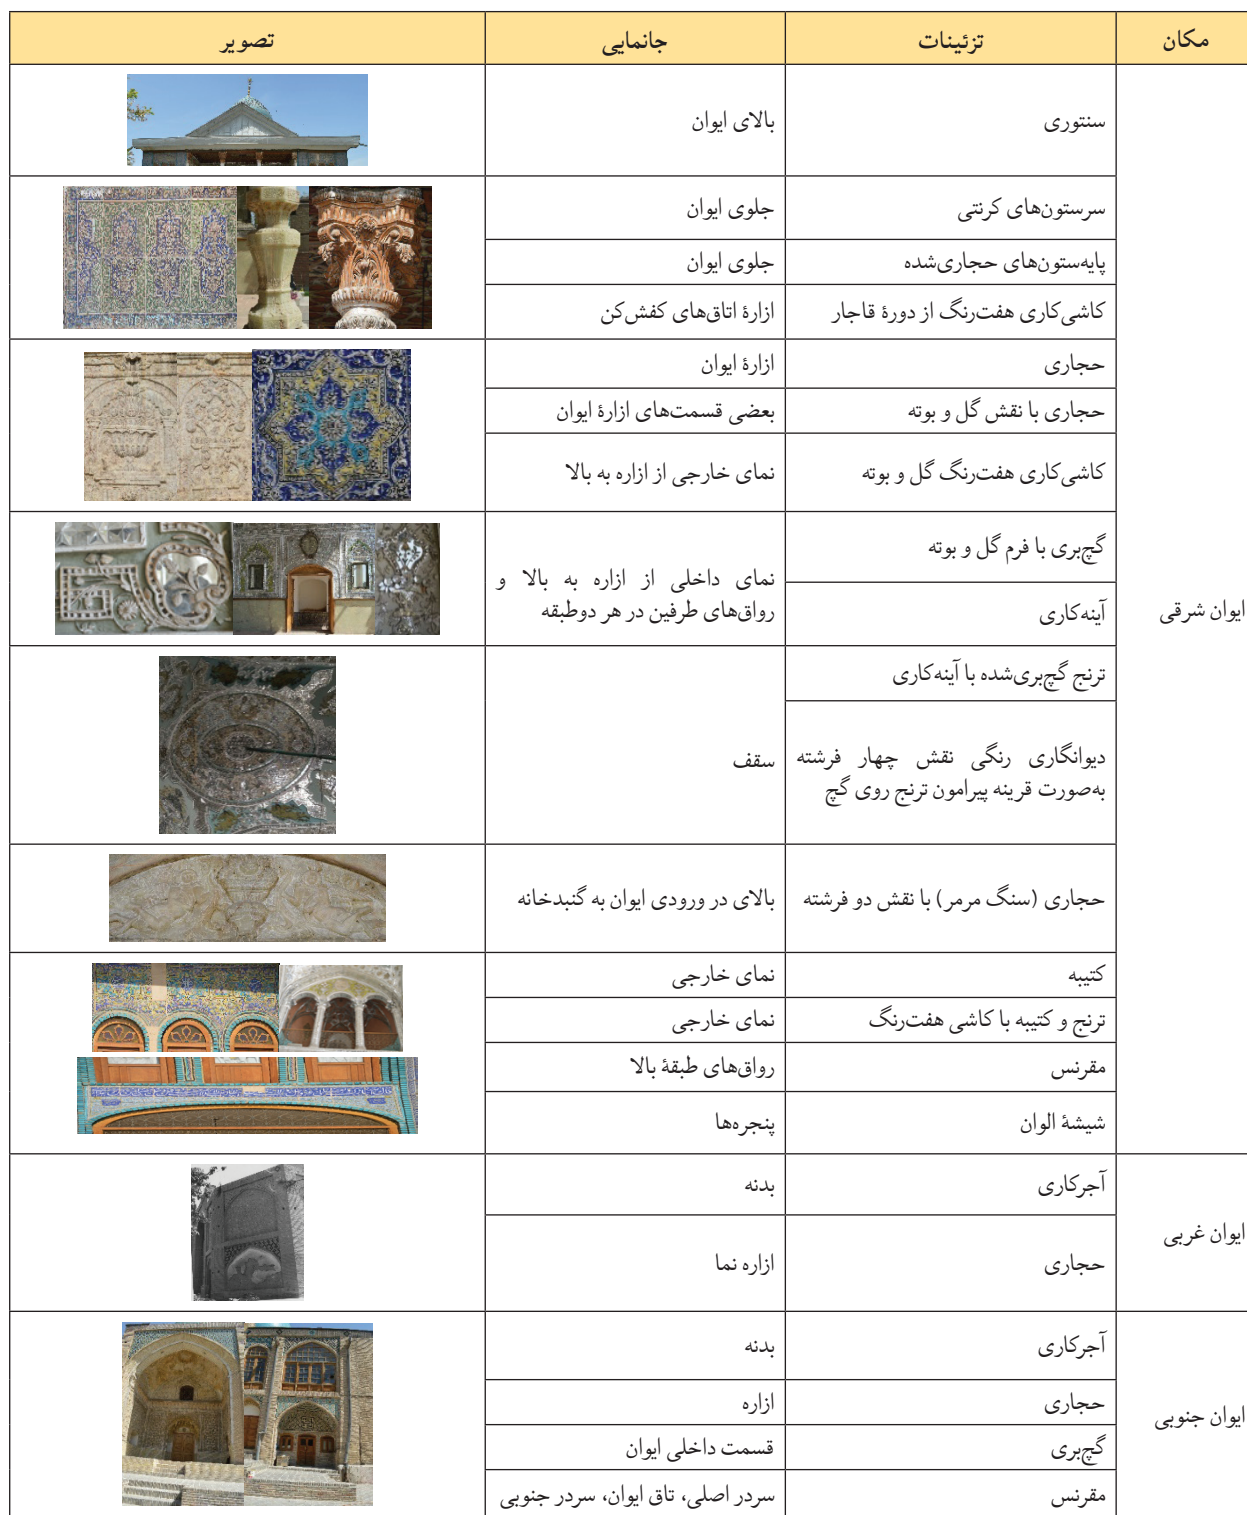 مکان تزئینات جانمایی تصویر
ایوان شرقی
سنتوری بالای ایوان
سرستون‌های کرنتی جلوی ایوان
پایه‌ستون‌های حجاری‌شده جلوی ایوان
کاشی‌کاری هفت‌رنگ از دورۀ قاجار ازارۀ اتاق‌های کفش‌کن
حجاری ازارۀ ایوان
حجاری با نقش گل و بوته بعضی قسمت‌های ازارۀ ایوان
کاشی‌کاری هفت‌رنگ گل و بوته نمای خارجی از ازاره به بالا
گچ‌بری با فرم گل و بوته
آینه‌کاری
نمای داخلی از ازاره به بالا و
رواق‌های طرفین در هر دوطبقه
ترنج گچ‌بری‌شده با آینه‌کاری
دیوانگاری رنگی نقش چهار فرشته
به‌صورت قرینه پیرامون ترنج روی گچ
سقف
حجاری (سنگ مرمر) با نقش دو فرشته بالای در ورودی ایوان به گنبدخانه
کتیبه نمای خارجی
ترنج و کتیبه با کاشی هفت‌رنگ نمای خارجی
مقرنس رواق‌های طبقۀ بالا
شیشۀ الوان پنجره‌ها
ایوان غربی
آجرکاری بدنه
حجاری ازاره نما
ایوان جنوبی
آجرکاری بدنه
حجاری ازاره
گچ‌بری قسمت داخلی ایوان
مقرنس سردر اصلی، تاق ایوان، سردر جنوبی